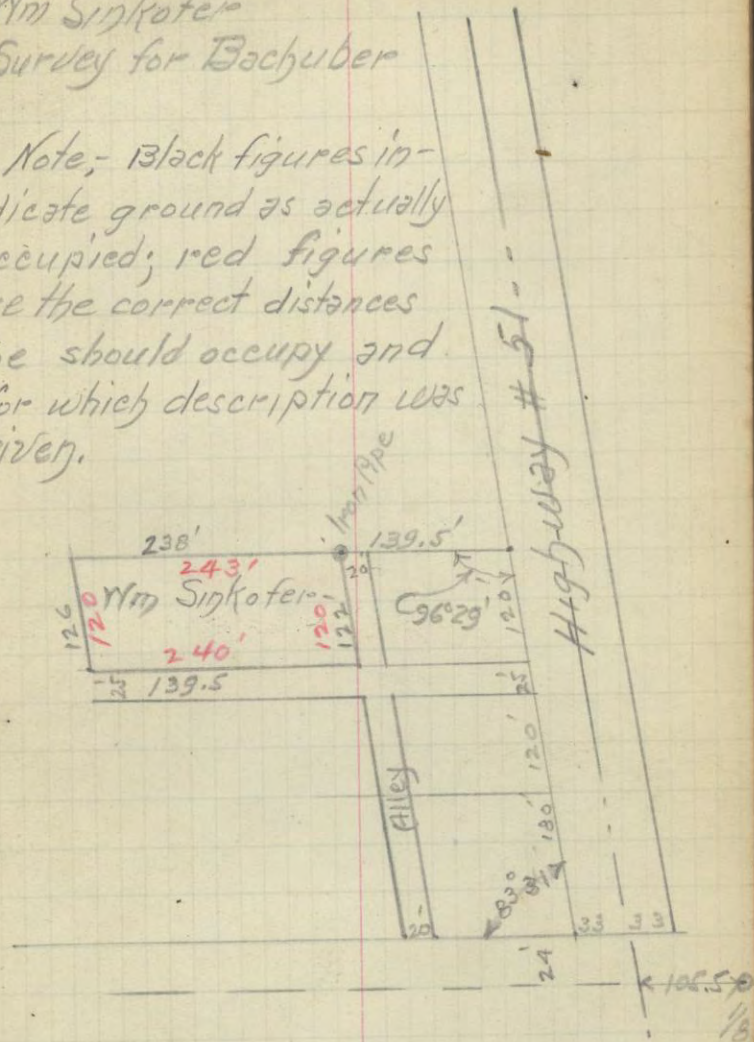 Wm Sinkofer
Survey for Bachuber
Note;- Black figures in-
dicate ground as actually
occupied; red figures
are the correct distances
he should occupy and
for which description was
given.
Iron Pipe
238' 139.5'
243' 20'
Wm Sinkofer
126 120 120' 122 96°29' 120'
240'
25 139.5 25
Highway # 51
120'
Alley
180'
83°
20
33 33
24'
105.5
1/8